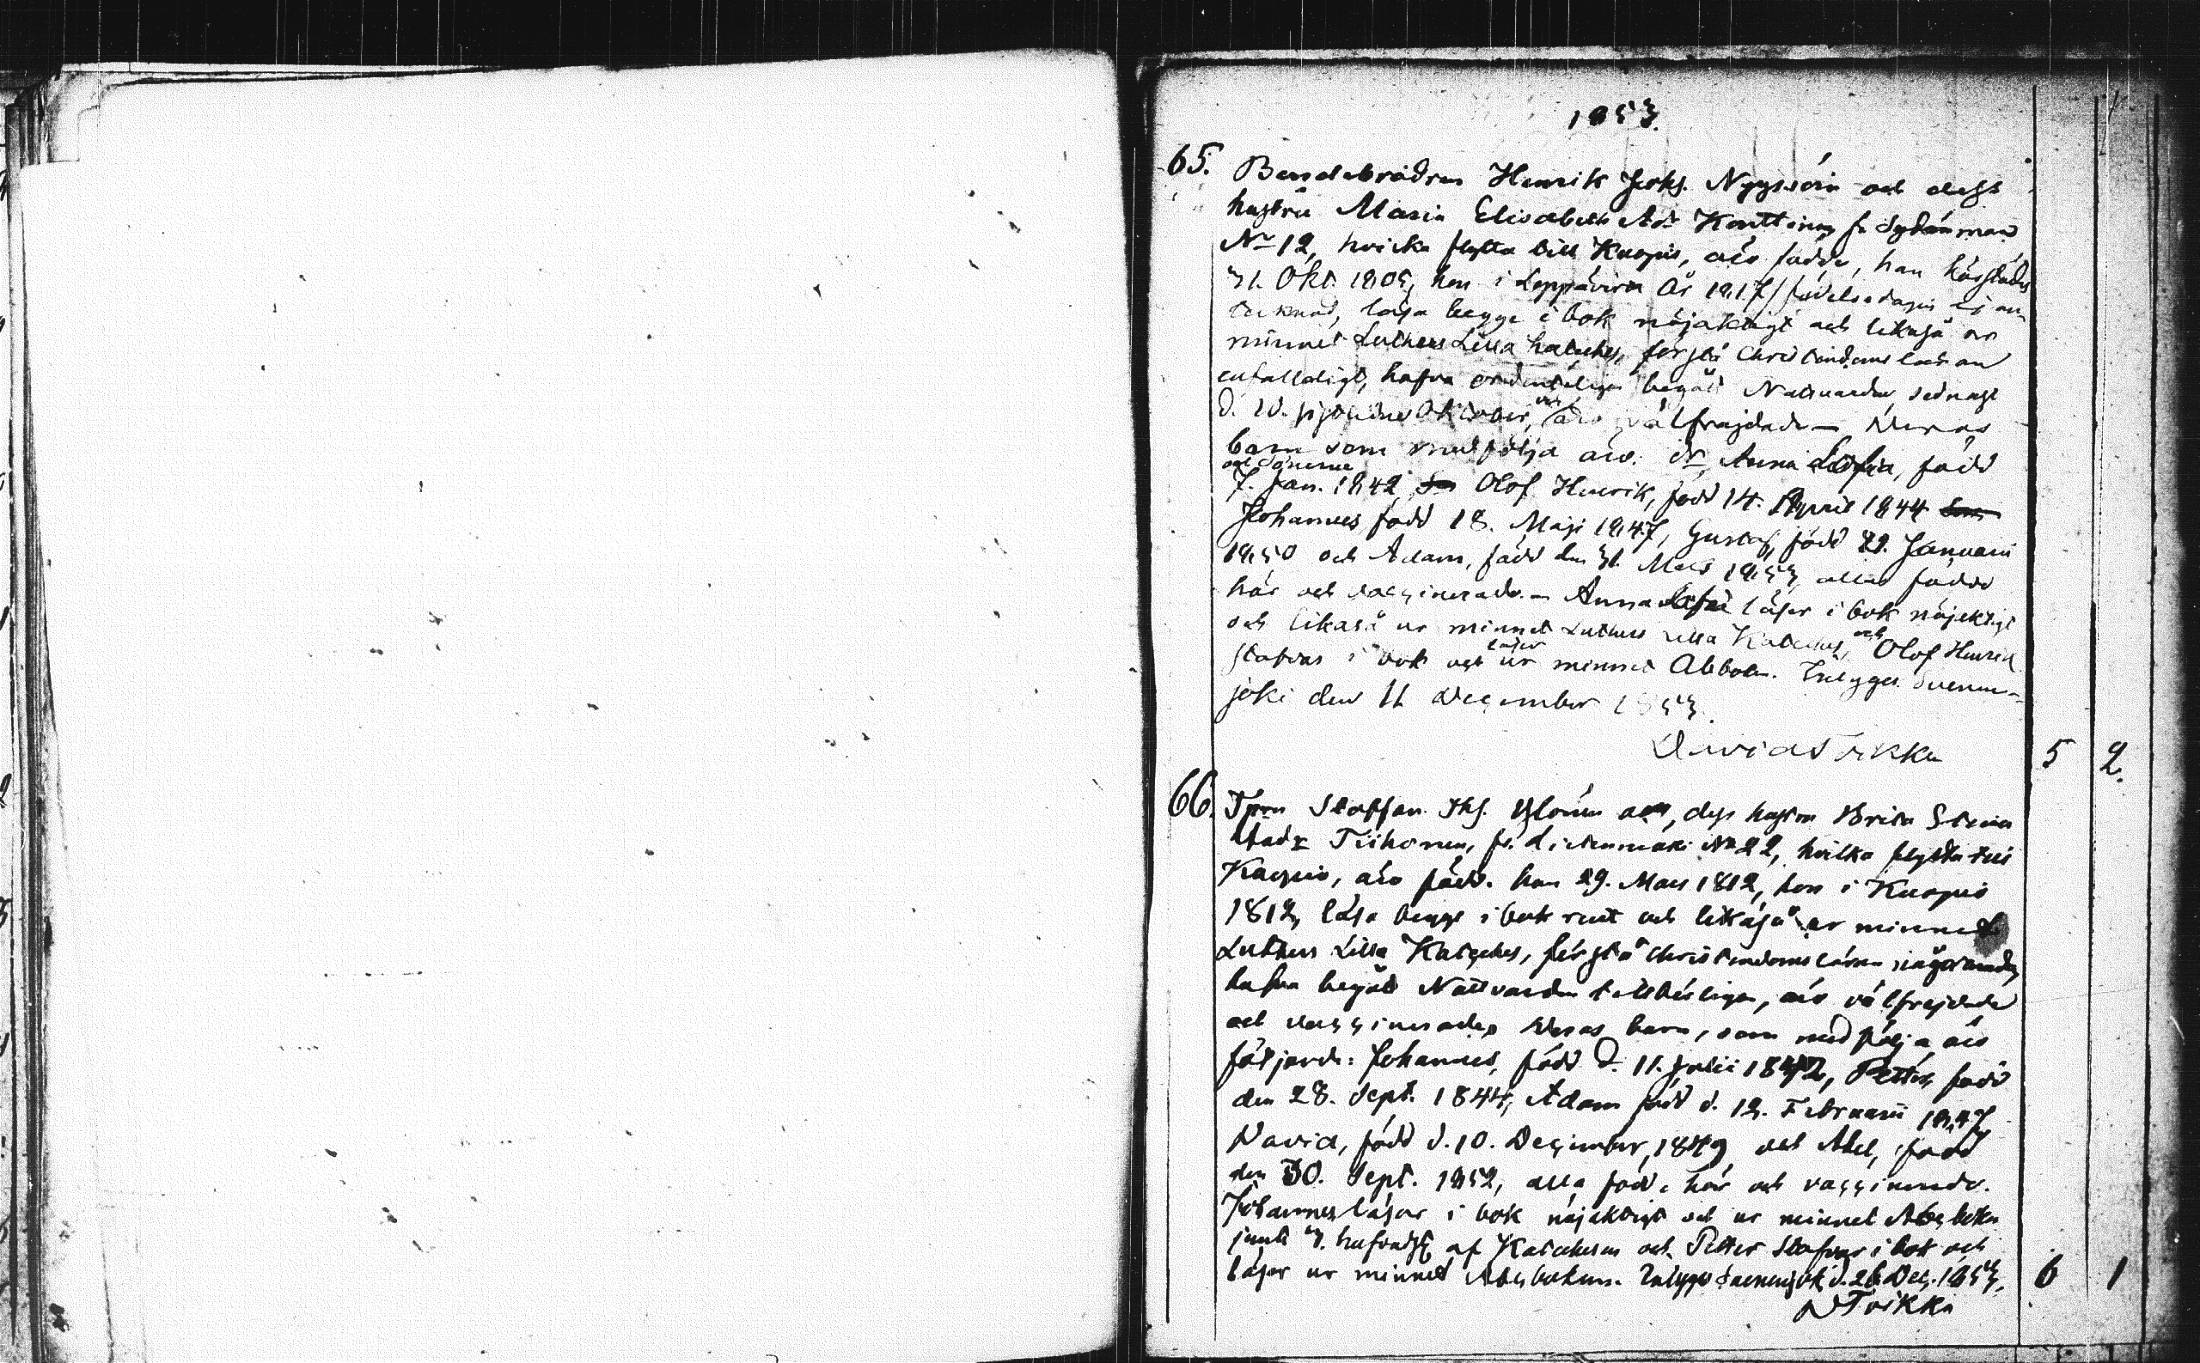 1853.
65. Bondebrodren Henrik Joh. Nyyssöin och dess
hustru Maria Elisabeth Ad: Konttinen fr. Sydänmaa
No 12, hvilka flytta till Kuopio, äro födde, han härstädes
31. Okt. 1805, hon i Leppävirta År 1817 / födelsedagen ej an-
tecknad, läsa begge i bok nöjaktigt och likaså ur
minnet Luthers Lilla kateches, förstå Christendoms läran
enfalldigt, hafva ordenteligen begått Nattvarden, sednast
d. 10. sistledne Oktober, och äro välfrejdade — Deras
barn som medfölja äro: dr. Anna Sofia, född
och sönerne
7. Jan. 1842, Olof Henrik, född 14. April 1844
Johannes född 18. Maji 1847, Gustaf, född 22. Januarii
1850 och Adam, född den 31. Mars 1853, alla födde
här och vaccinerade. — Anna Sofia läser i bok nöjaktigt
och likaså ur minnet Luthers Lilla Kateches, och Olof Henrik
stafvar i bok och läser ur minnet Abboken. Intygar Suonen-
joki den 11 December 1853.
David Toikka 5 2.
66. Tprn Staffan Joh. Ylönen och dess hustru Brita Stina
Madsr Tiihonen, fr. Lietenmäki No 22, hvilka flytta till
Kuopio, äro född. han 29. Mars 1812, hon i Kuopio
1812, läsa begge i bok rent och likaså ur minnet
Luthers Lilla Kateches, förstå Christendoms läran någorlunda,
hafva begått Nattvarden tillbörligen, äro välfrejdade
och vaccinerade. Deras barn, som medfölja äro
följande: Johannes, född d. 11. Julii 1842, Petter, född
den 28. Sept. 1844, Adam född d. 12. Februarii 1847
David, född d. 10. December, 1849 och Abel, född
den 30. Sept. 1852, alla född. här och vaccinerade.
Johannes läser i bok nöjaktigt och ur minnet Abcboken
jemte hufvudst. af Katechesen och Petter Stafvar i bok och
läser ur minnet Abcboken. Intygar Suonenjoki d. 26 Dec. 1853. 6 1
D Toikka